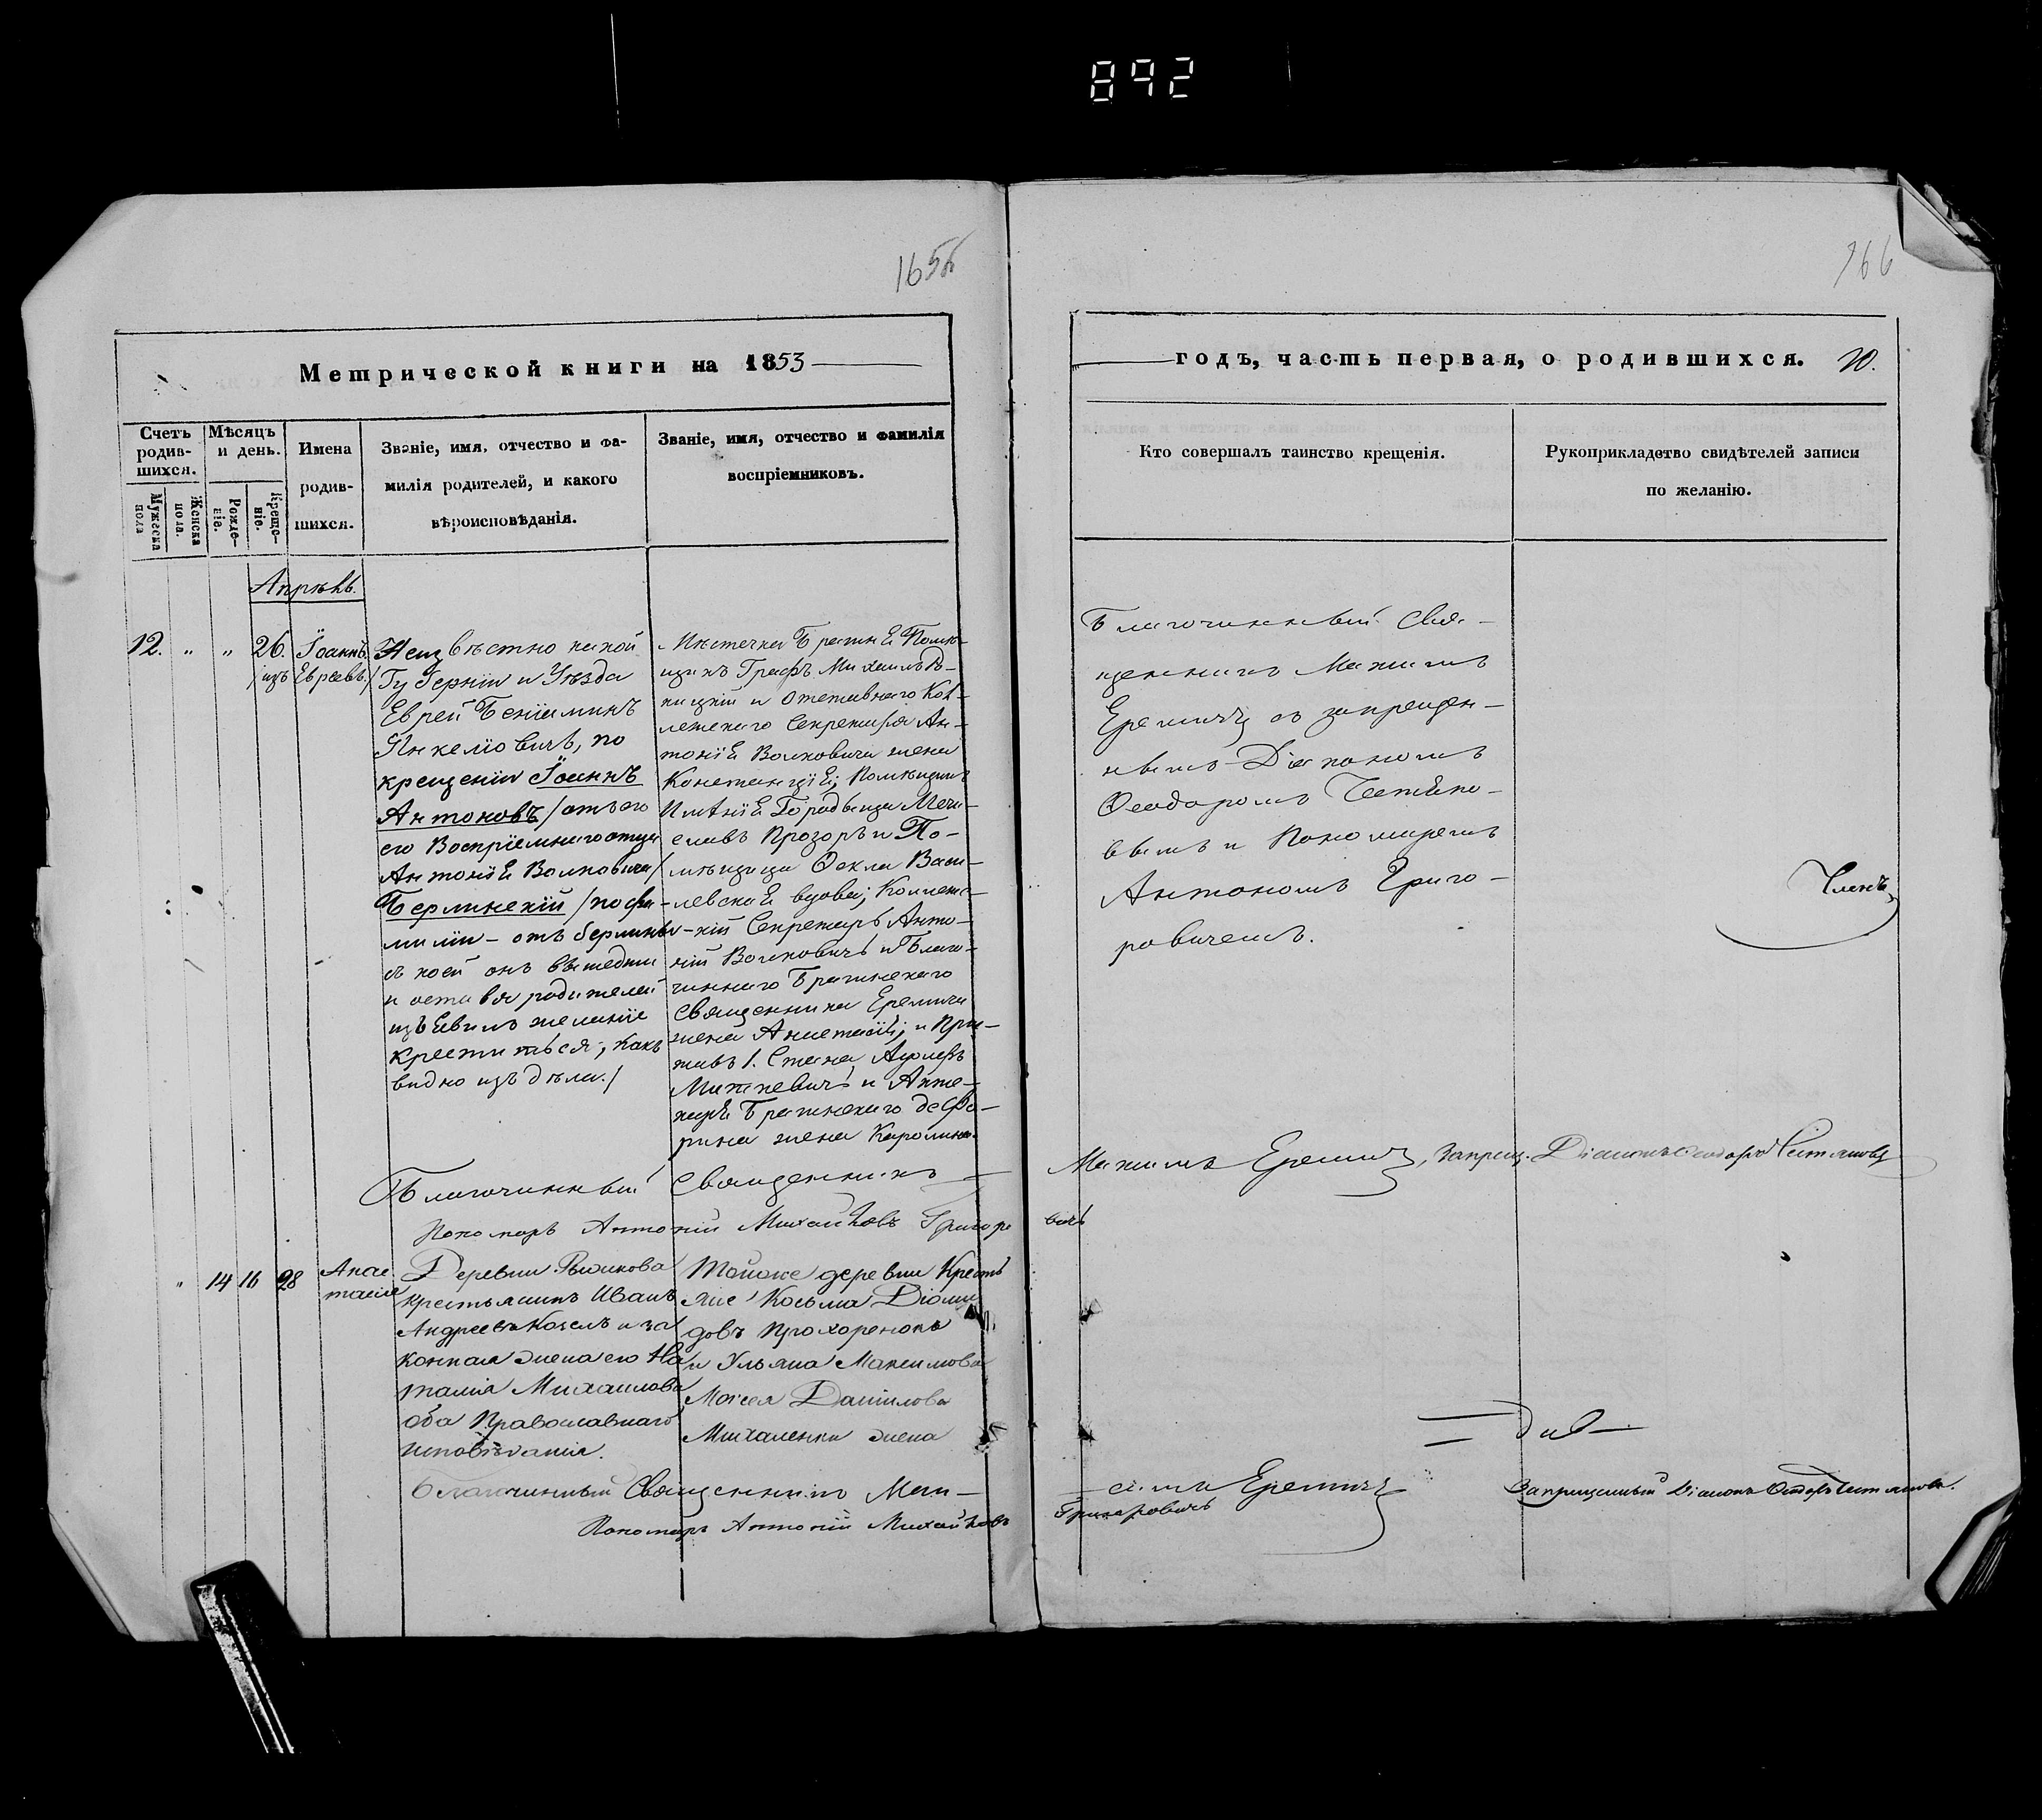 892
165об
166
Метрической книги на 1853
годъ, часть первая, о родившихся. 20.
Счетъ родив-шихся.
Мужеска пола
Женска пола.
Мѣсяцъ и день.
Рожде-ніе.
Креще-ніе.
Имена
родив-
шихся.
Званіе, имя, отчество и фа-
милія родителей, и какого
вѣроисповѣданія.
Званіе, имя, отчество и фамилія
воспріемниковъ.
Кто совершалъ таинство крещенія.
Рукоприкладство свидѣтелей записи
по желанію.
Апрѣль.
12. " " 26. Іоаннъ
/изъ Евреевъ/
Неизвѣстно какой
Губерніи и Уѣзда
Еврей Беніаминъ
Янкеліовичъ, по
крещеніи Іоаннъ
Антоновъ /отъ
его Воспріемнаго отца
Антонія Волковича/
Берлинскій /по фа-
миліи - отъ Берлина
съ коей онъ вышедши
и оставя родителей
изъявилъ желаніе
креститься, какъ
видно изъ дѣла./
Мѣстечка Брагиня Помѣ-
щикъ Графъ Михаилъ Ра-
кицкій и отставнаго Кол-
лежскаго Секретаря Ан-
тонія Волковича жена
Констанція; Помѣщикъ
Имѣнія Городыща Мечи-
славъ Прозоръ и По-
мѣщица Ѳекла Васи-
левская вдова; Коллежс-
кій Секретарь Анто-
ній Волковичъ и Благо-
чиннаго Брагинскаго
Священника Еремича
жена Анастасія; и При-
ставъ 1. Стана
Миткевичъ и Апте-
каря Брагинскаго
жена Каролина.
Благочинный Свя-
щенникъ Максимъ
Еремичъ съ запрещен-
нымъ Діакономъ
Ѳеодоромъ
и Пономаремъ
Антономъ Григо-
ровичемъ.
Членъ
Благочинный Священникъ Максимъ Еремичъ, Запрещ. Діаконъ Ѳеодоръ
Пономарь Антоній Михайловъ Григоровичъ
" 14 16 28 Анас
тасія
Деревни
крестьянинъ Иванъ
Андреевъ Козелъ и за
конная жена его На
талія Михаилова
оба Православнаго
исповѣданія.
Тойоже деревни Кресть
яне Косьма Діоми
довъ Прохоренокъ
и Ульяна Максимова
Моисея Даніилова
Михаленки жена
Благочинный Священникъ Мак-
симъ Еремичъ
Запрещенный Діаконъ Ѳеодоръ
Пономарь Антоній Михайловъ
Григоровичъ